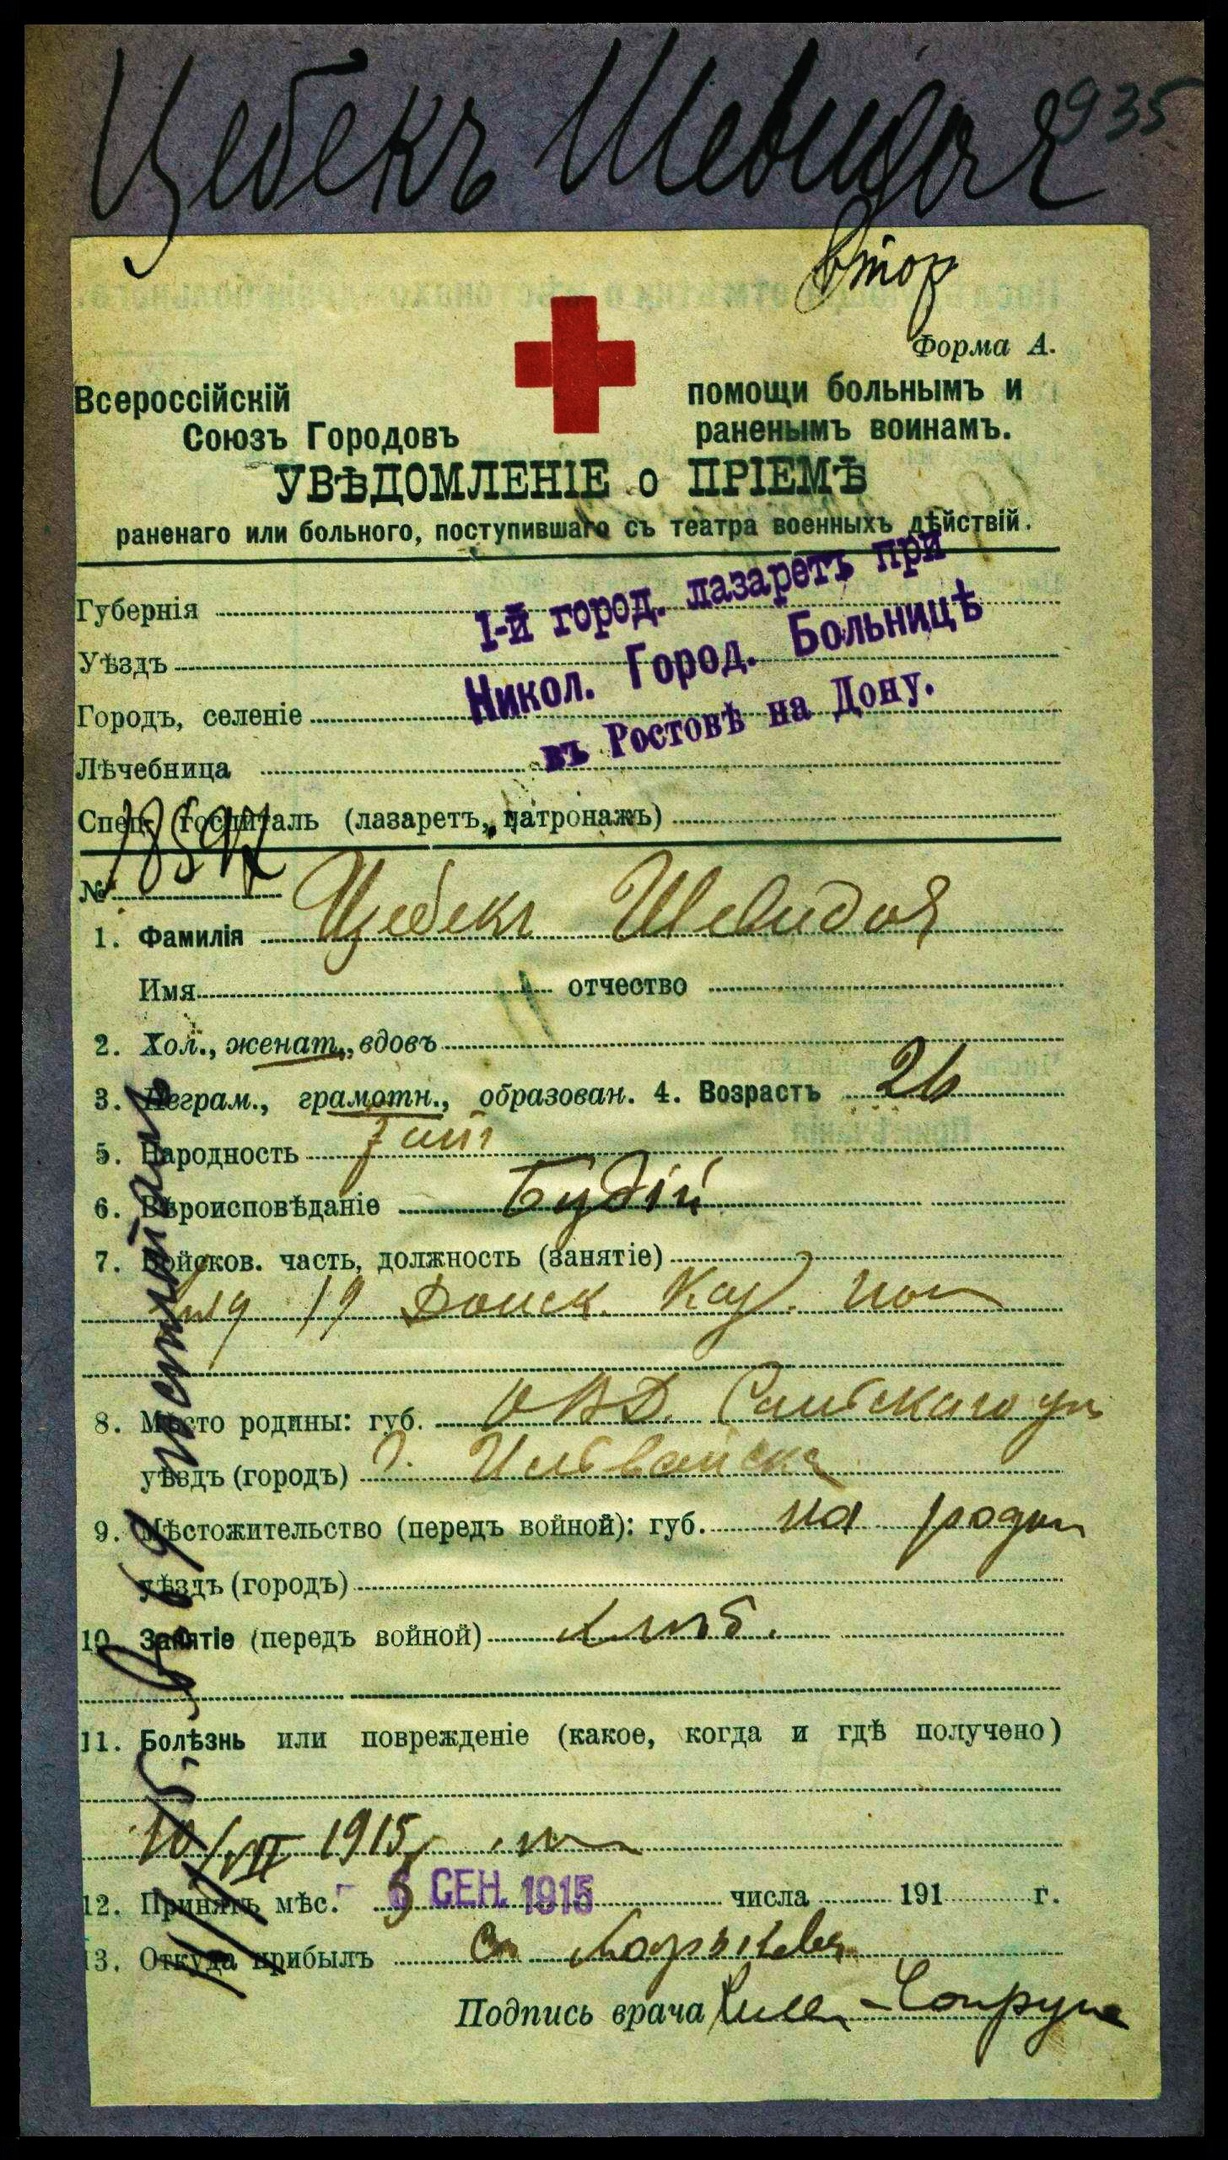 Цебекъ Шевидоя 935
втор
Форма А.
Всероссійскій
Союзъ Городовъ
помощи больнымъ и
раненымъ воинамъ.
УВѢДОМЛЕНІЕ о ПРІЕМѢ
раненаго или больного, поступившаго съ театра военныхъ дѣйствій.
I-й город. лазаретъ при
Никол. Город. Больницѣ
въ Ростовѣ на Дону.
Губернія
Уѣздъ
Городъ, селеніе
Лѣчебница
Спец. госпиталь (лазаретъ, патронажъ)
№
1. Фамилія Цебекъ Шевидоя
Имя отчество
2. Хол., женат., вдовъ
3. Неграм., грамотн., образован. 4. Возрастъ 26
5. Народность
6. Вѣроисповѣданіе Будій
7. Войсков. часть, должность (занятіе)
19 Донск. Каз. пол
8. Мѣсто родины: губ. ОВД.
уѣздъ (городъ)
9. Мѣстожительство (передъ войной): губ. на родин
уѣздъ (городъ)
10. Занятіе (передъ войной) хлѣб.
11. Болѣзнь или поврежденіе (какое, когда и гдѣ получено)
10/VII 1915
12. Принятъ мѣс. 5 СЕН. 1915 числа 191 г.
13. Откуда прибылъ съ
Подпись врача